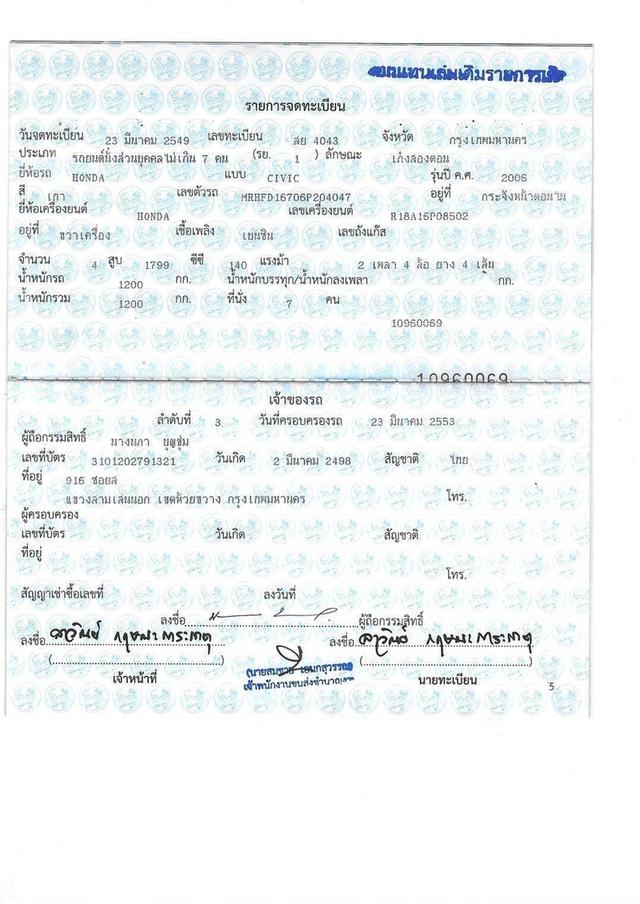 รายการจดทะเบียน
วันจดทะเบียน 23 มีนาคม 2549 เลขทะเบียน 4043 จังหวัด กรุงเทพมหานคร
ประเภท รถยนต์นั่งส่วนบุคคลไม่เกิน 7 คน (รย. 1 ) ลักษณะ เก๋งสองตอน
ยี่ห้อรถ HONDA แบบ CIVIC รุ่นปี ค.ศ. 2006
สี เทา เลขตัวรถ MRHFD16706P204047 อยู่ที่ กระจังหน้าตอนใน
ยี่ห้อเครื่องยนต์ HONDA เลขเครื่องยนต์ R18A16P08502
อยู่ที่ ขวาเครื่อง เชื้อเพลิง เบนซิน เลขถังแก๊ส
จำนวน 4 สูบ 1799 ซีซี 140 แรงม้า 2 เพลา 4 ล้อ ยาง 4 เส้น
น้ำหนักรถ 1200 กก. น้ำหนักบรรทุก/น้ำหนักลงเพลา กก.
น้ำหนักรวม 1200 กก. ที่นั่ง 7 คน
10960069
10960069
เจ้าของรถ
ลำดับที่ 3 วันที่ครอบครองรถ 23 มีนาคม 2553
ผู้ถือกรรมสิทธิ์ นางนภา
เลขที่บัตร 3101202791321 วันเกิด 2 มีนาคม 2498 สัญชาติ ไทย
ที่อยู่ 916 ซอยส
แขวงสามเสนนอก เขตห้วยขวาง กรุงเทพมหานคร โทร.
ผู้ครอบครอง
เลขที่บัตร วันเกิด สัญชาติ
ที่อยู่
โทร.
สัญญาเช่าซื้อเลขที่ ลงวันที่
ลงชื่อ ผู้ถือกรรมสิทธิ์
ลงชื่อ ลงชื่อ
(นายสมชาย
เจ้าหน้าที่ เจ้าพนักงานขนส่งชำนาญงาน นายทะเบียน
5